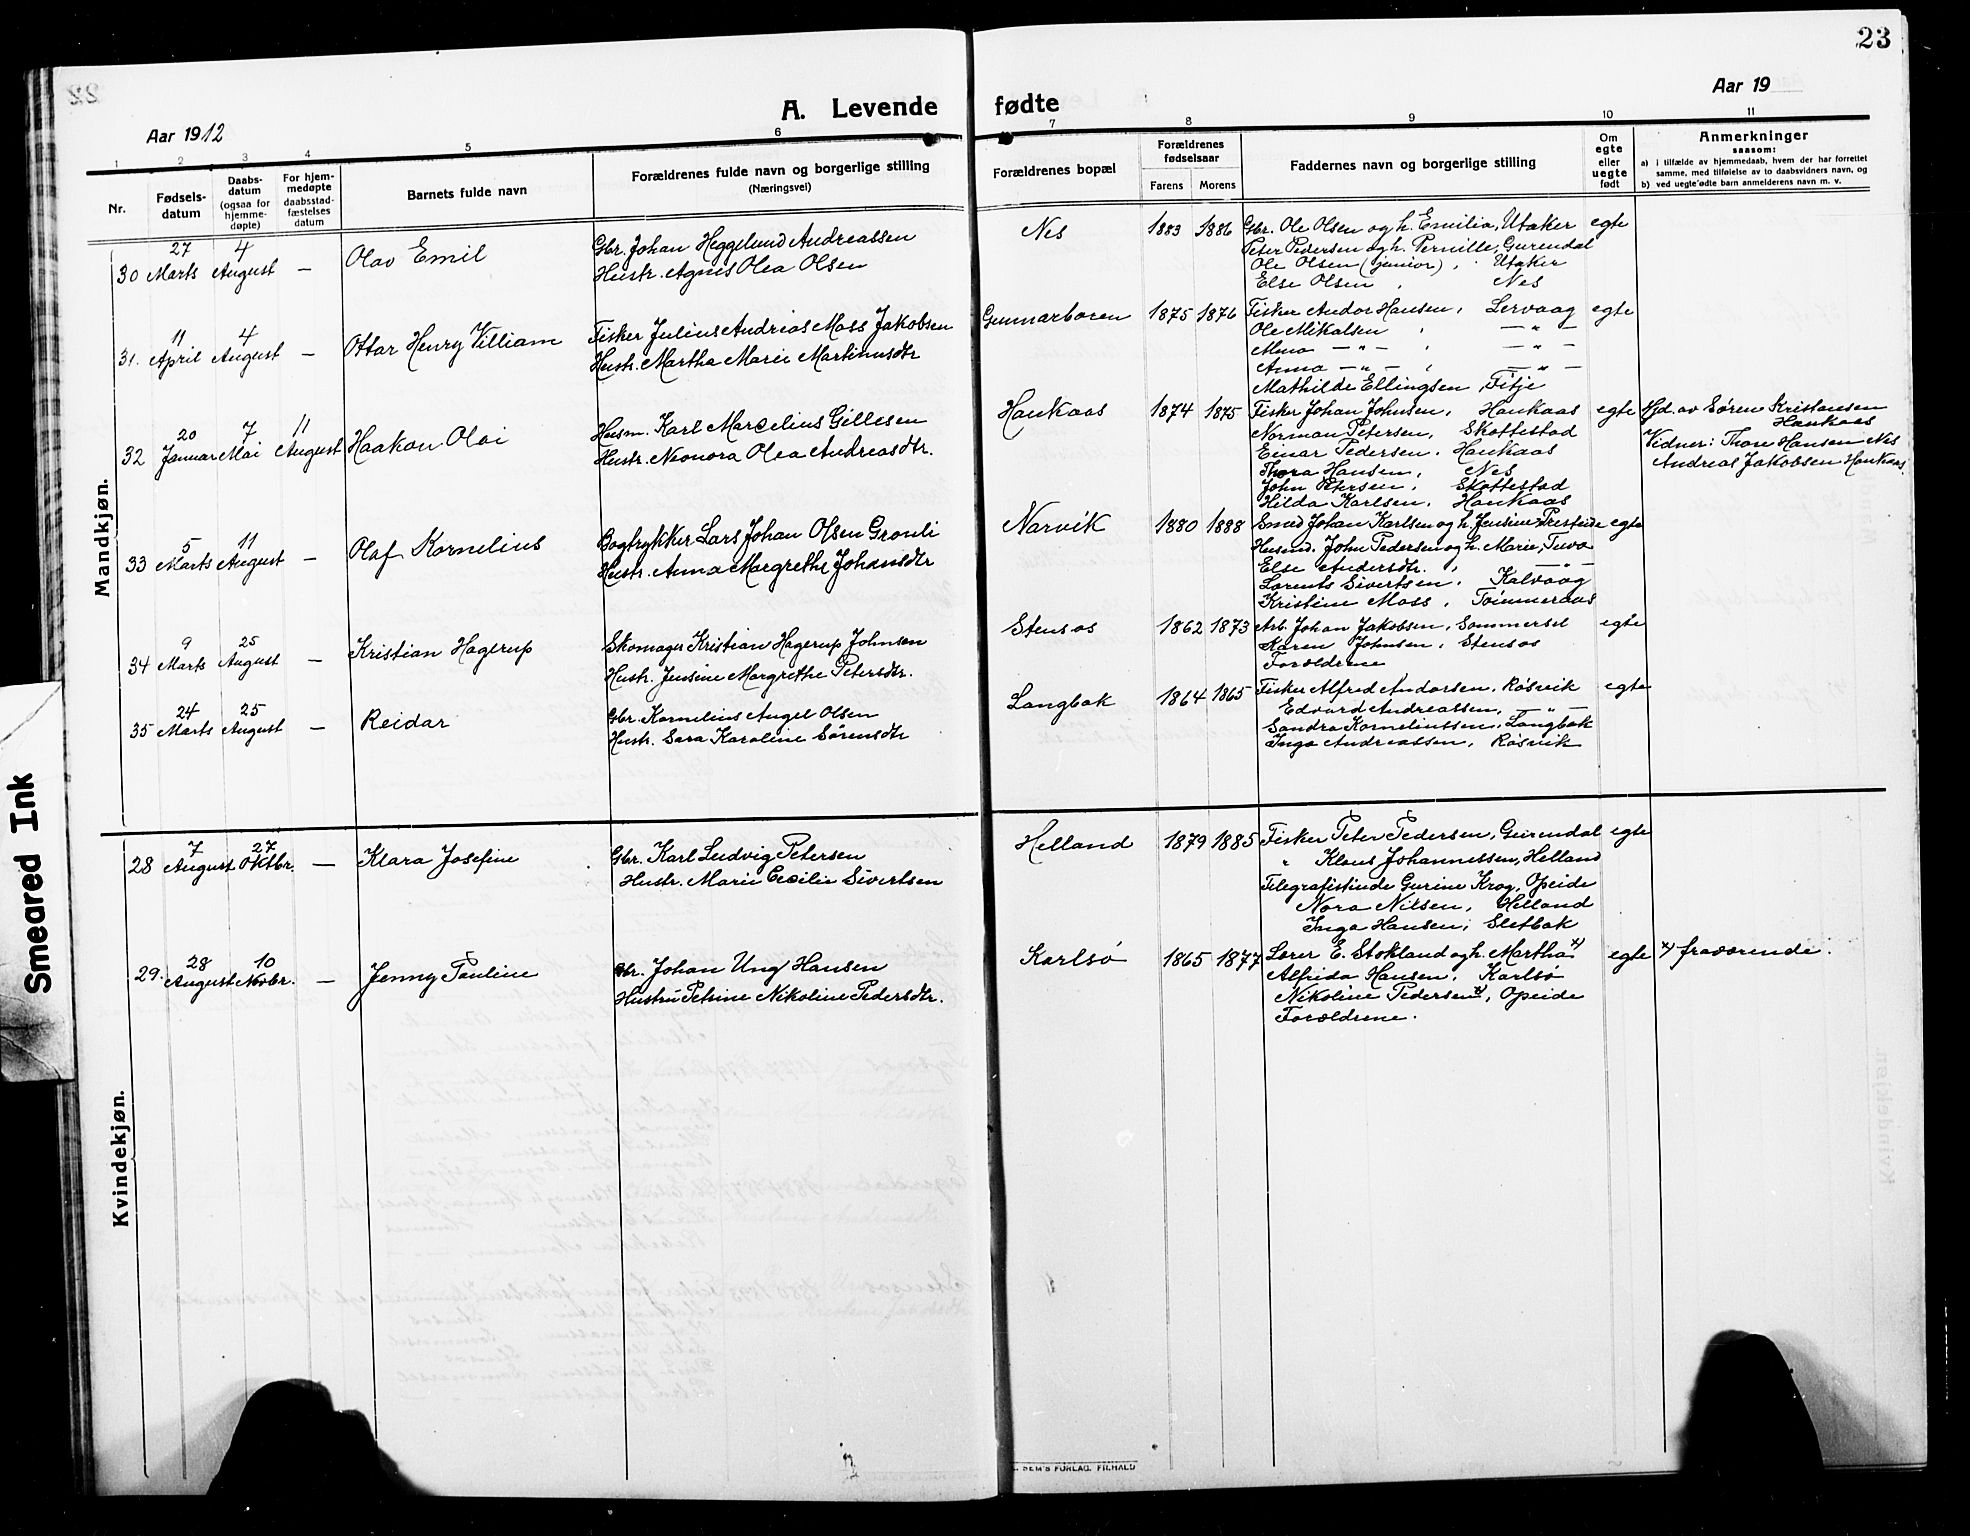 23
A. Levende fødte
Aar 1912
Aar 19
1 2 3 4 5 6 7 8 9 10 11
Nr.
Fødsels-
datum
Daabs-
datum
(ogsaa for
hjemme-
døpte)
For hjem-
medøpte
daabsstad-
fæstelses
datum
Barnets fulde navn
Forældrenes fulde navn og borgerlige stilling
(Næringsvei)
Forældrenes bopæl
Forældrenes
fødselsaar
Farens Morens
Faddernes navn og borgerlige stilling
Om
egte
eller
uegte
født
Anmerkninger
saasom:
a) i tilfælde av hjemmedaab, hvem der har forrettet
samme, med tilføielse av to daabsvidners navn, og
b) ved uegte fødte barn anmelderens navn m. v.
Mandkjøn.
30 27 Marts 4 August — Olav Emil
Gbr. Johan Heggelund Andreassen
Hustr. Agnes Olea Olsen
Nes 1883 1886
Gbr. Ole Olsen og h. Emilia, Utaker egte
Peter Pedersen og h. Pernille, Gurendal
Ole Olsen (junior), Utaker
Else Olsen, Nes
31. 11 April 4 August — Ottar Henry Villiam
Fisker Julius Andreas Moss Jakobsen
Hustr. Martha Marie Martinusdtr
Gunnarboren 1875 1876
Fisker Andor Hansen, Lervaag egte
Ole Mikalsen, — " —
— " — , — " —
Anna — " — , — " —
Mathilde Ellingsen, Fitje
32 20 Januar 7 Mai 11 August Haakon Olai
Husm. Karl Marcelius Gillesen
Hustr. Neonora Olea Andreasdtr.
Haukaas 1874 1875
Fisker Johan Johnsen, Haukaas egte
Norman Petersen, Skottestad
Einar Pedersen, Haukaas
Thora Hansen, Nes
John Petersen, Skottestad
Hilda Karlsen, Haukaas
Hjd. av Søren Kristensen
Haukaas
Vidner: Thore Hansen Nes
Andreas Jakobsen Haukaas
33 5 Marts 11 August — Olaf Kornelius
Bogtrykker Lars Johan Olsen Grønli
Hustr. Anna Margrethe Johansdtr
Narvik 1880 1888
Smed Johan Karlsen og h. Jensine, Presteide egte
Husmd. John Pedersen og h. Marie, Tuva
Else Andersdtr. , — " —
Lorents Sivertsen, Kalvaag
Kristine Moss, Tømmeraas
34 9 Marts 25 August — Kristian Hagerup
Skomager Kristian Hagerup Johnsen
Hustr. Jensine Margrethe Petersdtr.
Stensos 1862 1873
Arb. Johan Jakobsen, Sommersel egte
Karen Johnsen, Stensos
Forældrene
35 24 Marts 25 August — Reidar
Gbr. Kornelius Angel Olsen
Hustr. Sara Karoline Sørensdtr
Langbak 1864 1865
Fisker Alfred Andorsen, Røsvik egte
Edvard Andreassen, — " —
Sandra Korneliussen, Langbak
Inga Andreassen, Røsvik
Kvindekjøn.
28 7 August 27 Oktbr. — Klara Josefine
Gbr. Karl Ludvig Petersen
Hustr. Marie Cecilie Sivertsen
Helland 1879 1885
Fisker Peter Pedersen, Gurendal egte
" Klaus Johannessen, Helland
Telegrafistinde Gurine Krog, Opeide
Nora Nilsen, Helland
Inga Hansen, Sletbak
29. 28 August 10 Novbr. — Jenny Pauline
Gbr. Johan Ung Hansen
Hustru Petrine Nikoline Pedersdtr.
Karlsø 1865 1877
Lærer E. Stokland og h. Martha x) egte x) fraværende.
Alfrida Hansen, Karlsø
Nikoline Pedersen x), Opeide
Forældrene.
SEM'S FORLAG, F.H.HALD
Smeared Ink